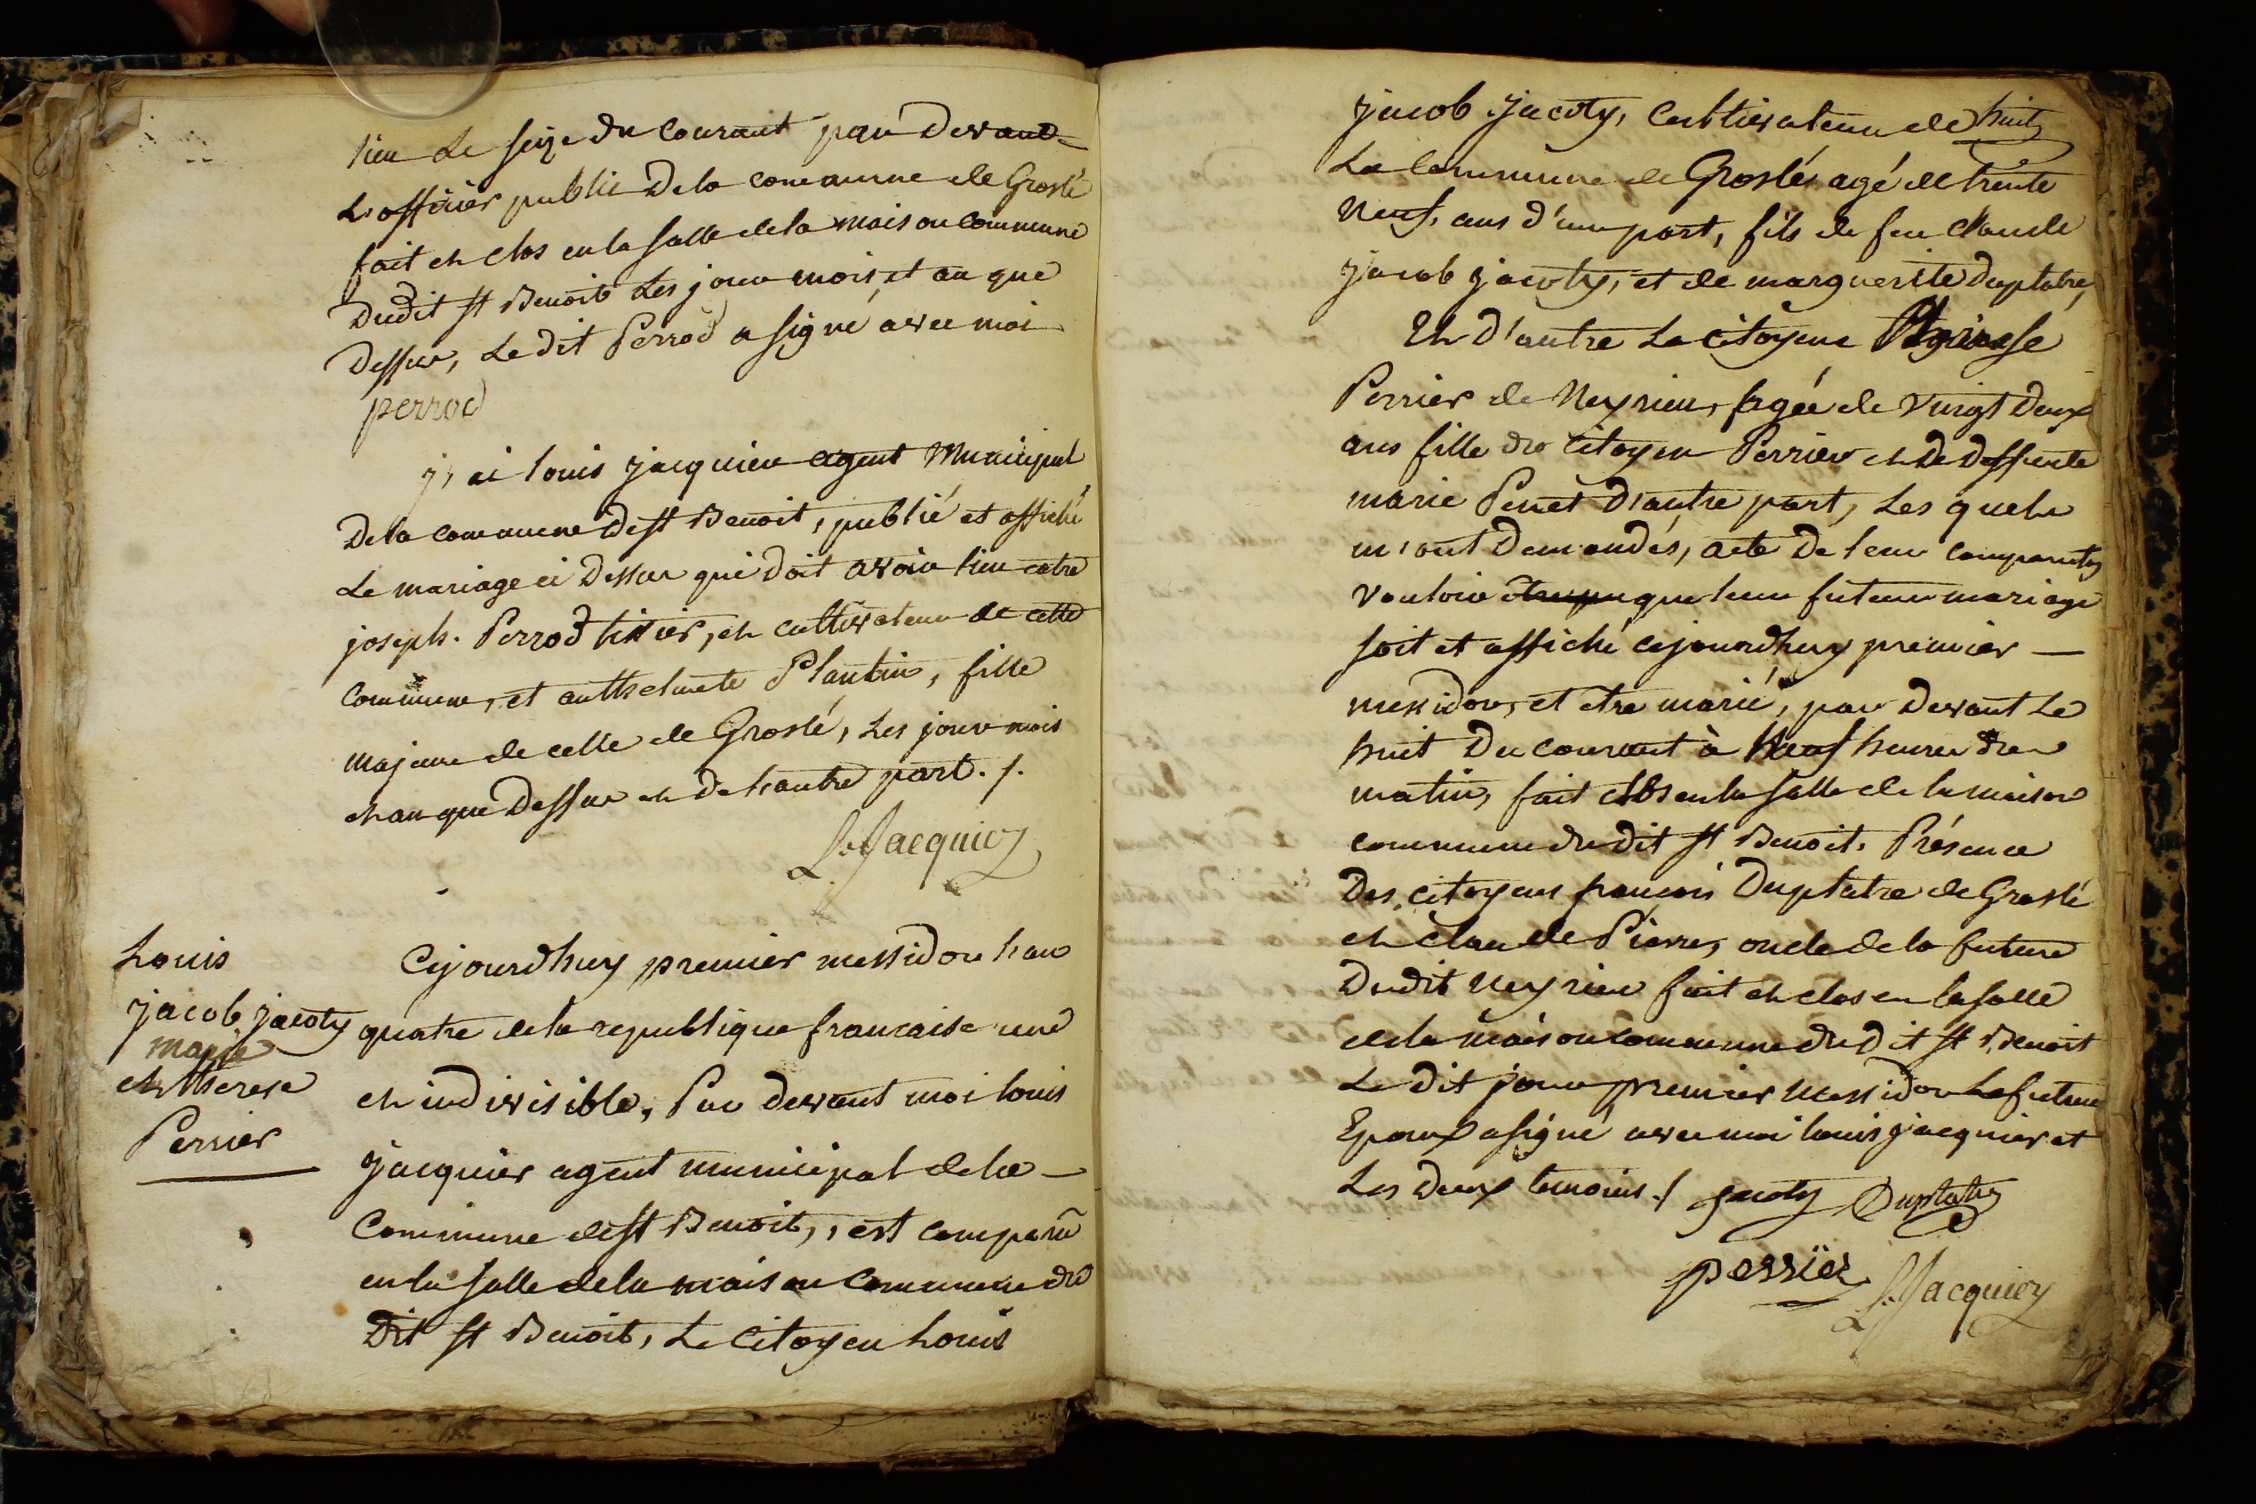 lieu Le seize du courant par devand
L'officier public De la commune de Groslé
fait et clos en la salle de la maison commune
Dudit st Benoit Les jour mois, et an que
Dessus, Le dit Perrod a signé avec moi
perrod
j'ai louis jacquier agent Municipal
De la commune De st Benoit, publié et affiché
Le mariage ci Dessus qui doit avoir lieu entre
joseph. Perrod tissier, et cultivateur de cette
commune, et anthelmete Plantin, fille
majeure de celle de Groslé, Les jour mois
et an que Dessus et de l'autre part. /.
L. Jacquier
Louis
jacob jacoty
marié
et therese
Perrier
Cejourdhuy premier messidor l'an
quatre de la republique francaise une
et indivisible, Par devant moi louis
jacquier agent municipal de la
Commune de st Benoit, est comparu
en la salle de la maison Commune du
Dit st Benoit, Le Citoyen Louis
jacob jacoty, cultivateur de
La Commune de Groslé agé de trente
Neuf, ans d'une part, fils de feu Claude
jacob jacoty, et de marguerite Duplatre,
Et d'autre La citoyene
Perrier de Neyrieu, agée de vingt Deux
ans fille du citoyen Perrier et De Deffunte
marie Penet D'autre part, Les quels
m'ont Demandés, acte De leur
vouloir que leur futeur mariage
soit et affiché cejourdhuy premier
messidor, et etre marié, par devant Le
huit Du courant à Neuf heures du
matin, fait clos en la salle de la maison
commune du dit st Benoit. Présence
Des citoyens francois Duplatre de Groslé
et claude Pierre, oncle de la future
Dudit Neyrieu fait et clos en la salle
de la maison commune du dit st Benoit
Le dit jour premier Messidor Le futeur
Epoux a signé avec moi louis jacquier et
Les Deux temoins ./ jacoty Duplatre
perrier
L. Jacquier